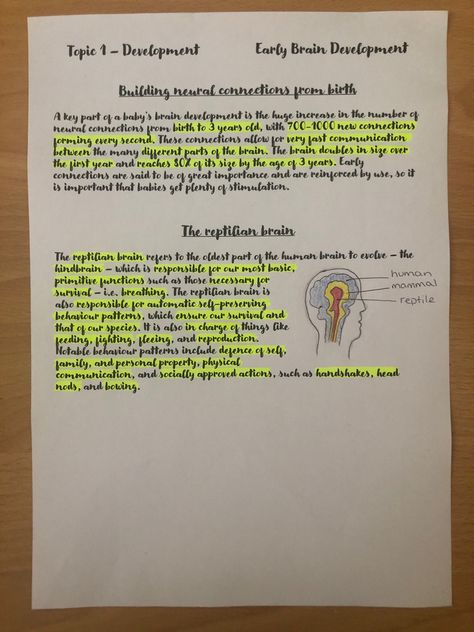 Topic 1 – Development Early Brain Development
Building neural connections from birth
A key part of a baby's brain development is the huge increase in the number of
neural connections from birth to 3 years old, with 700-1000 new connections
forming every second. These connections allow for very fast communication
between the many different parts of the brain. The brain doubles in size over
the first year and reaches 80% of its size by the age of 3 years. Early
connections are said to be of great importance and are reinforced by use, so it
is important that babies get plenty of stimulation.
The reptilian brain
The reptilian brain refers to the oldest part of the human brain to evolve – the
hindbrain – which is responsible for our most basic,
primitive functions such as those necessary for
survival – i.e. breathing. The reptilian brain is
also responsible for automatic self-preserving
behaviour patterns, which ensure our survival and
that of our species. It is also in charge of things like
feeding, fighting, fleeing, and reproduction.
Notable behaviour patterns include defence of self,
family, and personal property, physical
communication, and socially approved actions, such as handshakes, head
nods, and bowing.
human
mammal
reptile